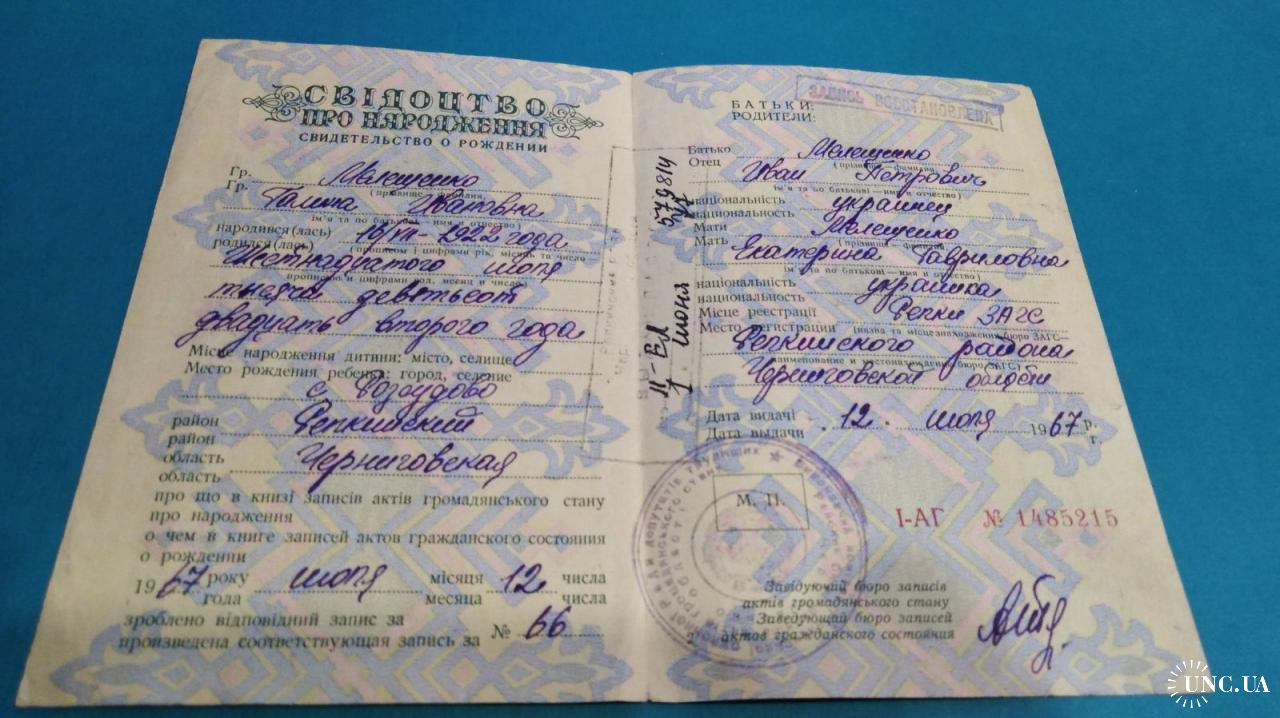 СВІДОЦТВО
ПРО НАРОДЖЕННЯ
СВИДЕТЕЛЬСТВО О РОЖДЕНИИ
Гр. Мелешенко
Гр.
Галина Ивановна
народився(лась) 16/VII - 1922 года
родился(лась)
Шестнадцатого июля
тысяча девятьсот
двадцать второго года
Місце народження дитини: місто, селище
Место рождения ребенка: город, селение
с.
район Репкинский
район
область Черниговская
область
про що в книзі записів актів громадянського стану
про народження
о чем в книге записей актов гражданского состояния
о рождении
1967 року июля місяця 12 числа
года месяца числа
зроблено відповідний запис за № 66
произведена соответствующая запись за
ЗАПИСЬ ВОССТАНОВЛЕНА
БАТЬКИ:
РОДИТЕЛИ:
Батько Мелешенко
Отец
Иван Петрович
ім'я та по батькові — имя и отчество)
національність украинец
национальность
Мати Мелешенко
Мать
Екатерина Гавриловна
ім'я та по батькові — имя и отчество)
національність украинка
национальность
Місце реєстрації Репки ЗАГС
Место регистрации (назва та місцезнаходження бюро ЗАГС—
Репкинского района
наименование и местонахождение бюро ЗАГС)
Черниговской области
Дата видачі 12 июля 1967 р.
Дата выдачи г.
М. П.
I-АГ № 1485215
Завідуючий бюро записів
актів громадянського стану
Заведующий бюро записей
актов гражданского состояния
II-ЕЛ 579814
июня
UNC.UA